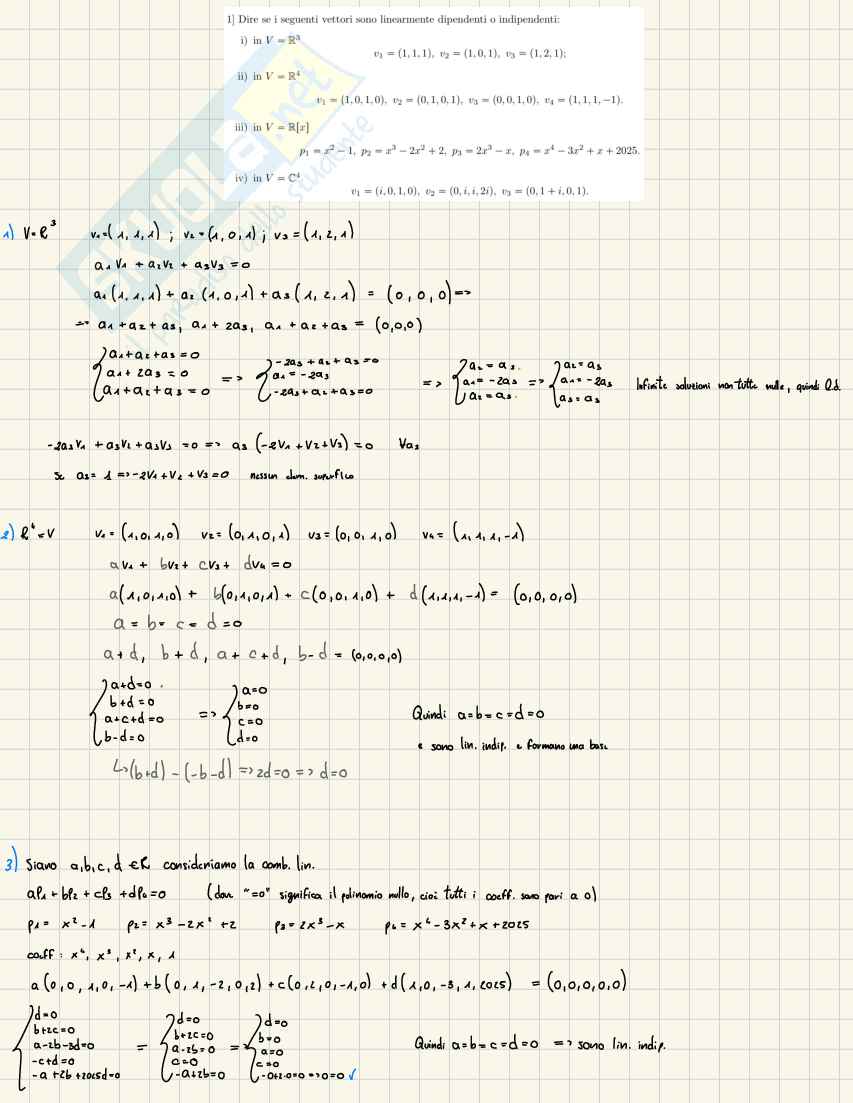 1] Dire se i seguenti vettori sono linearmente dipendenti o indipendenti:
i) in V = ℝ³
v₁ = (1, 1, 1), v₂ = (1, 0, 1), v₃ = (1, 2, 1);
ii) in V = ℝ⁴
v₁ = (1, 0, 1, 0), v₂ = (0, 1, 0, 1), v₃ = (0, 0, 1, 0), v₄ = (1, 1, 1, −1).
iii) in V = ℝ[x]
p₁ = x² − 1, p₂ = x³ − 2x² + 2, p₃ = 2x³ − x, p₄ = x⁴ − 3x² + x + 2025.
iv) in V = ℂ⁴
v₁ = (i, 0, 1, 0), v₂ = (0, i, i, 2i), v₃ = (0, 1 + i, 0, 1).
SKUOLA.net
il paradiso dello studente
1) V=R³ v₁=(1,1,1) ; v₂=(1,0,1) ; v₃=(1,2,1)
a₁v₁ + a₂v₂ + a₃v₃ = 0
a₁(1,1,1) + a₂(1,0,1) + a₃(1,2,1) = (0,0,0) =>
=> a₁+a₂+a₃, a₁+2a₃, a₁+a₂+a₃ = (0,0,0)
a₁+a₂+a₃=0 => -2a₃+a₂+a₃=0 => a₂=a₃ => a₂=a₃
a₁+2a₃=0 a₁=-2a₃ a₁=-2a₃ a₁=-2a₃ Infinite soluzioni non tutte nulle, quindi l.d.
a₁+a₂+a₃=0 -2a₃+a₂+a₃=0 a₂=a₃ a₃=a₃
-2a₃v₁ + a₃v₂ + a₃v₃ = 0 => a₃(-2v₁+v₂+v₃)=0 ∀a₃
se a₃=1 => -2v₁+v₂+v₃=0 nessun elem. superfluo
2) R⁴=V v₁=(1,0,1,0) v₂=(0,1,0,1) v₃=(0,0,1,0) v₄=(1,1,1,-1)
av₁ + bv₂ + cv₃ + dv₄ = 0
a(1,0,1,0) + b(0,1,0,1) + c(0,0,1,0) + d(1,1,1,-1) = (0,0,0,0)
a = b = c = d = 0
a+d, b+d, a+c+d, b-d = (0,0,0,0)
a+d=0 a=0
b+d=0 => b=0 Quindi a=b=c=d=0
a+c+d=0 c=0
b-d=0 d=0 e sono lin. indip. e formano una base
↳(b+d) - (-b-d) => 2d=0 => d=0
3) Siano a,b,c,d ∈ R consideriamo la comb. lin.
ap₁ + bp₂ + cp₃ + dp₄ = 0 (dove "=0" significa il polinomio nullo, cioè tutti i coeff. sono pari a 0)
p₁ = x²-1 p₂ = x³-2x²+2 p₃ = 2x³-x p₄ = x⁴-3x²+x+2025
coeff : x⁴, x³, x², x, 1
a(0,0,1,0,-1) + b(0,1,-2,0,2) + c(0,2,0,-1,0) + d(1,0,-3,1,2025) = (0,0,0,0,0)
d=0 d=0 d=0
b+2c=0 b+2c=0 b=0
a-2b-3d=0 = a-2b=0 => a=0 Quindi a=b=c=d=0 => sono lin. indip.
-c+d=0 c=0 c=0
-a+2b+2025d=0 -a+2b=0 -0+2·0=0 => 0=0 ✓